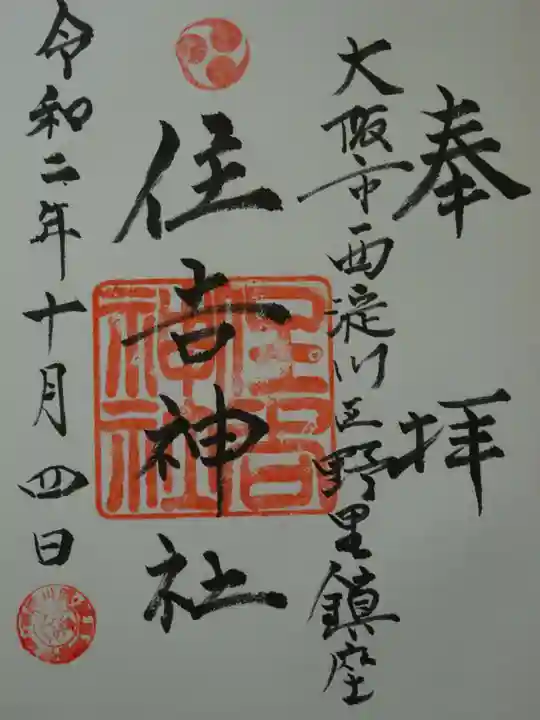 奉拝
大阪市西淀川区野里鎮座
住吉神社
住吉神社
令和二年十月四日